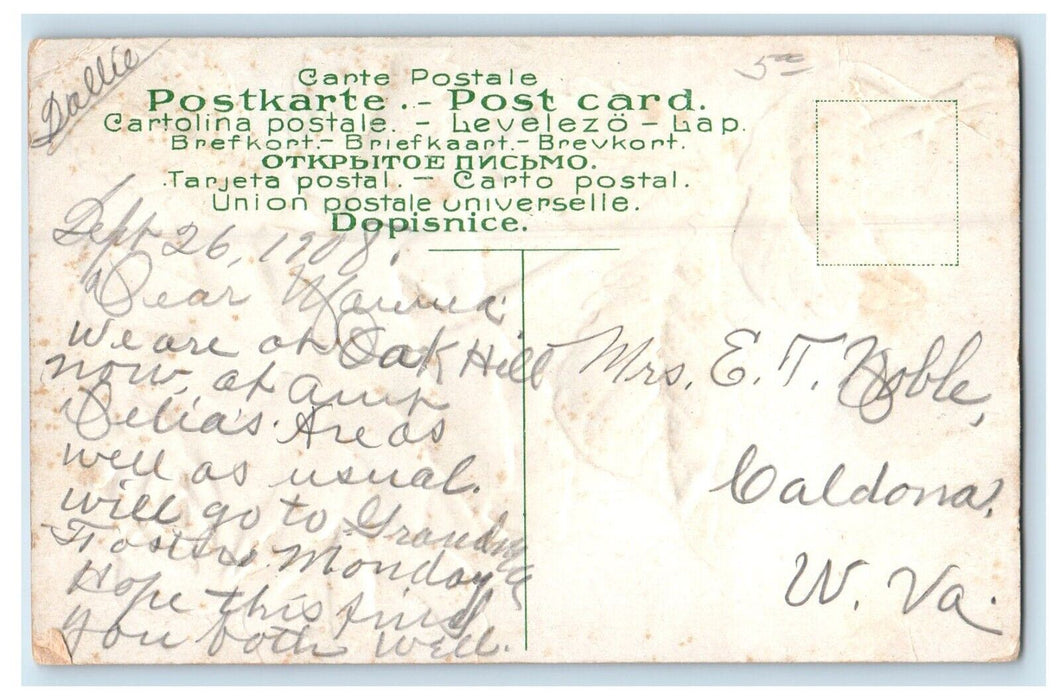 Dollie
5⁰⁰
Carte Postale
Postkarte .- Post card.
Cartolina postale. - Levelezö - Lap.
Brefkort.- Briefkaart.- Brevkort.
ОТКРЫТОЕ ПИСЬМО.
Tarjeta postal. - Carto postal.
Union postale universelle.
Dopisnice.
Sept 26, 1908.
Dear Mamma:
We are at Oak Hill
now, at Aunt
Delia's. Are as
well as usual.
will go to Grandma
Fosters Monday
Hope this finds
you both well.
Mrs. E. T. Noble,
Caldona,
W. Va.